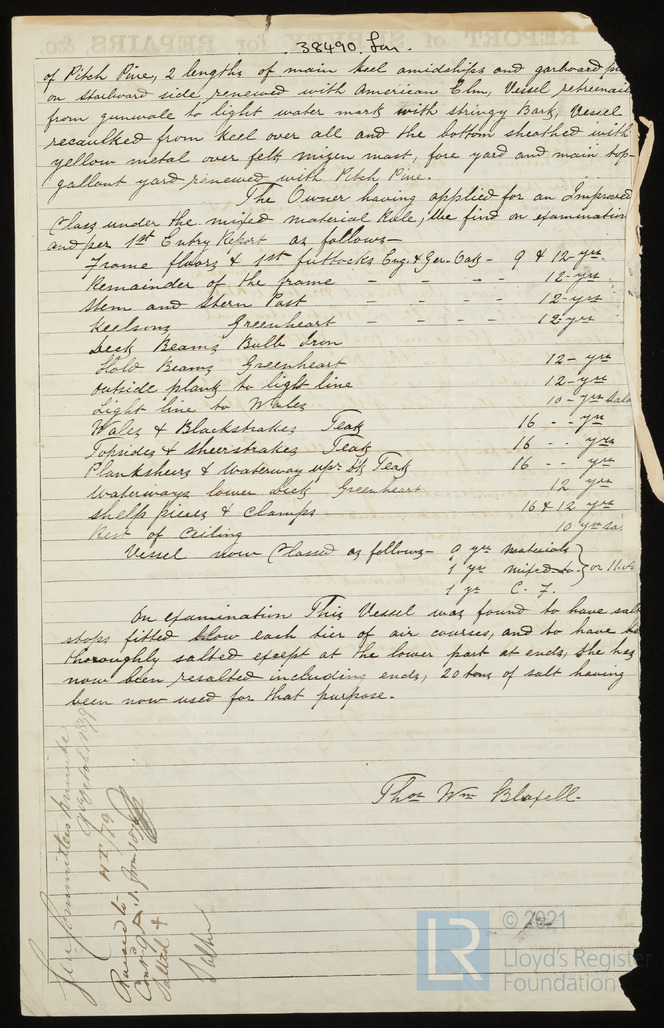 REPORT of SURVEY for REPAIRS, &c.
38490. Lon.
of Pitch Pine, 2 lengths of main keel amidships and garboard
on starboard side, renewed with American Elm, Vessel retreenailed
from gunwale to light water mark with stringy Bark, Vessel
recaulked from keel over all and the bottom sheathed with
yellow metal over felt, mizen mast, fore yard and main top-
gallant yard renewed with Pitch Pine.
The Owner having applied for an Improved
Class under the mixed material Rule, we find on examination
and per 1st Entry Report as follows—
Frame floors & 1st futtocks Eng. & Ger. Oak - 9 & 12-yrs.
Remainder of the frame - - - - 12-yrs
Stem and Stern Post - - - - 12-yrs
Keelsons Greenheart - - - - 12-yrs
Deck Beams Bulb Iron
Hold Beams Greenheart 12- yrs
Outside plank to light line 12-yrs
Light line to Wales 10 - yrs
Wales & Blackstrakes Teak 16 - - yrs
Topsides & Sheerstrakes Teak 16 - - yrs
Planksheers & Waterway upr. dk Teak 16 - - yrs
Waterways lower Deck Greenheart 12 yrs
Shelf pieces & Clamps 16 & 12 yrs
Rest of Ceiling 10 yrs
Vessel now Classed as follows— 9 yrs materials
1 yr mixed do. or 11
1 yr C. F.
On examination This Vessel was found to have salt
stops fitted blow each tier of air courses, and to have be
thoroughly salted except at the lower part at ends, She has
now been resalted including ends, 20 tons of salt having
been now used for that purpose.
Thos Wm Blaxell.
Committee's minute
Salted &
© 2021
LR
Lloyd's Register
Foundation